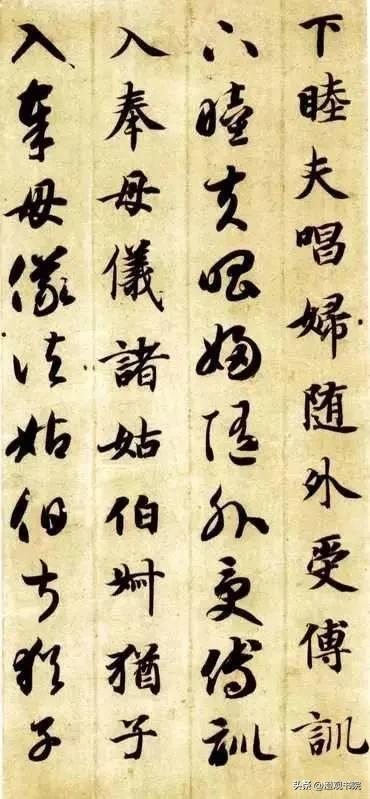 下睦夫唱婦随外受傅訓
下睦夫唱婦随外受傅訓
入奉母儀諸姑伯叔猶子
入奉母儀諸姑伯叔猶子
头条@澄观书院